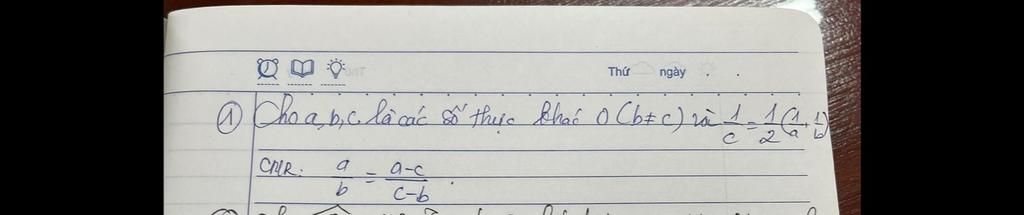 Thứ ngày . .
① Cho a, b, c là các số thực khác 0 (b ≠ c) và 1/c = 1/2 (1/a + 1/b)
CMR: a/b = (a-c)/(c-b).